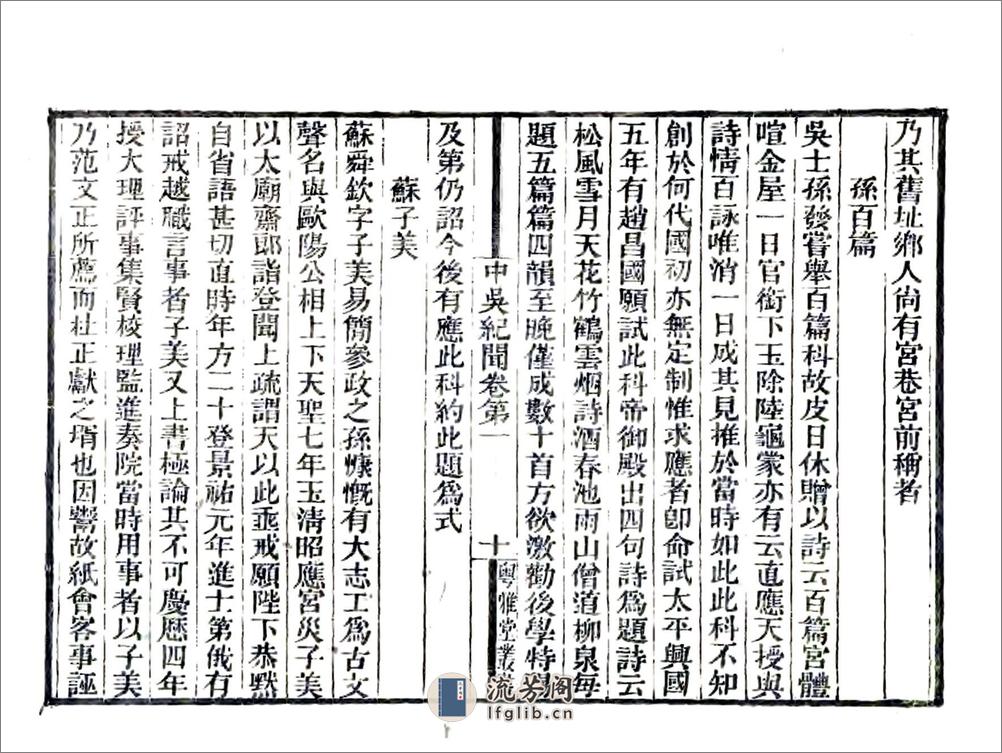 乃其舊址鄉人尚有宮巷宮前稱者
孫百篇
吳士孫發嘗舉百篇科故皮日休贈以詩云百篇宮體
喧金屋一日官銜下玉除陸龜蒙亦有云直應天授與
詩情百詠唯消一日成其見推於當時如此此科不知
創於何代國初亦無定制惟求應者卽命試太平興國
五年有趙昌國願試此科帝御殿出四句詩爲題詩云
松風雪月天花竹鶴雲烟詩酒春池雨山僧道柳泉每
題五篇篇四韻至晚僅成數十首方欲激勸後學特賜
中吳紀聞卷第一
十
粵雅堂叢書
及第仍詔今後有應此科約此題爲式
蘇子美
蘇舜欽字子美易簡參政之孫慷慨有大志工爲古文
聲名與歐陽公相上下天聖七年玉淸昭應宮災子美
以太廟齋郎詣登聞上疏謂天以此垂戒願陛下恭默
自省語甚切直時年方二十登景祐元年進士第俄有
詔戒越職言事者子美又上書極論其不可慶歷四年
授大理評事集賢校理監進奏院當時用事者以子美
乃范文正所薦而杜正獻之壻也因鬻故紙會客事誣
流芳阁
lfglib.cn